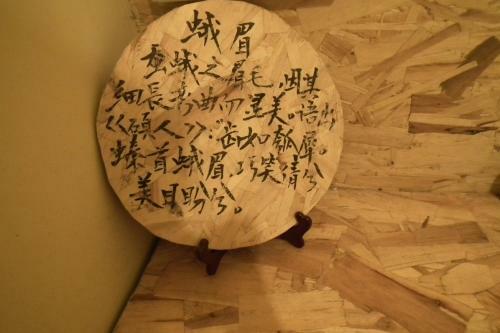 蛾眉
蚕蛾之眉毛,因其
細長弯曲显美。语出
《碩人》:齿如瓠犀。
螓首蛾眉.巧笑倩兮
美目盼兮。